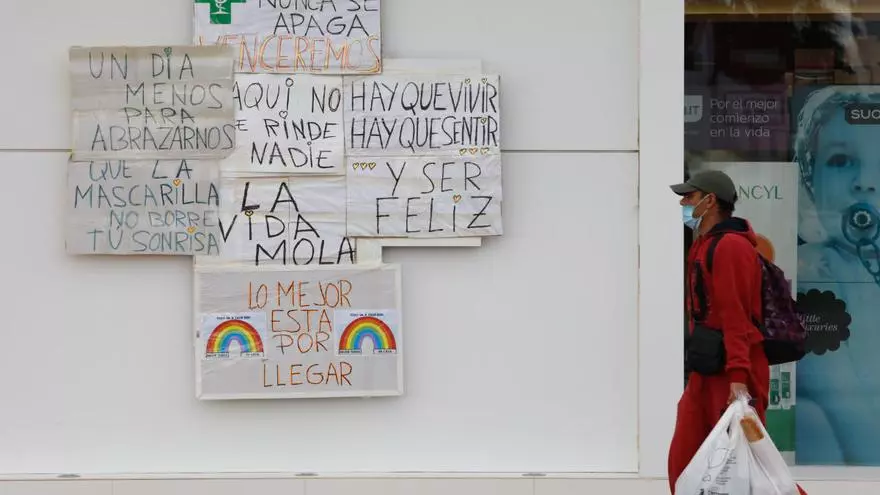 NUNCA SE
APAGA
VENCEREMOS
UN DÍA
MENOS
PARA
ABRAZARNOS
AQUÍ NO
SE RINDE
NADIE
HAY QUE VIVIR
HAY QUE SENTIR
QUE LA
MASCARILLA
NO BORRE
TU SONRISA
LA
VIDA
MOLA
Y SER
FELIZ
LO MEJOR
ESTA
POR
LLEGAR
Por el mejor
comienzo
en la vida